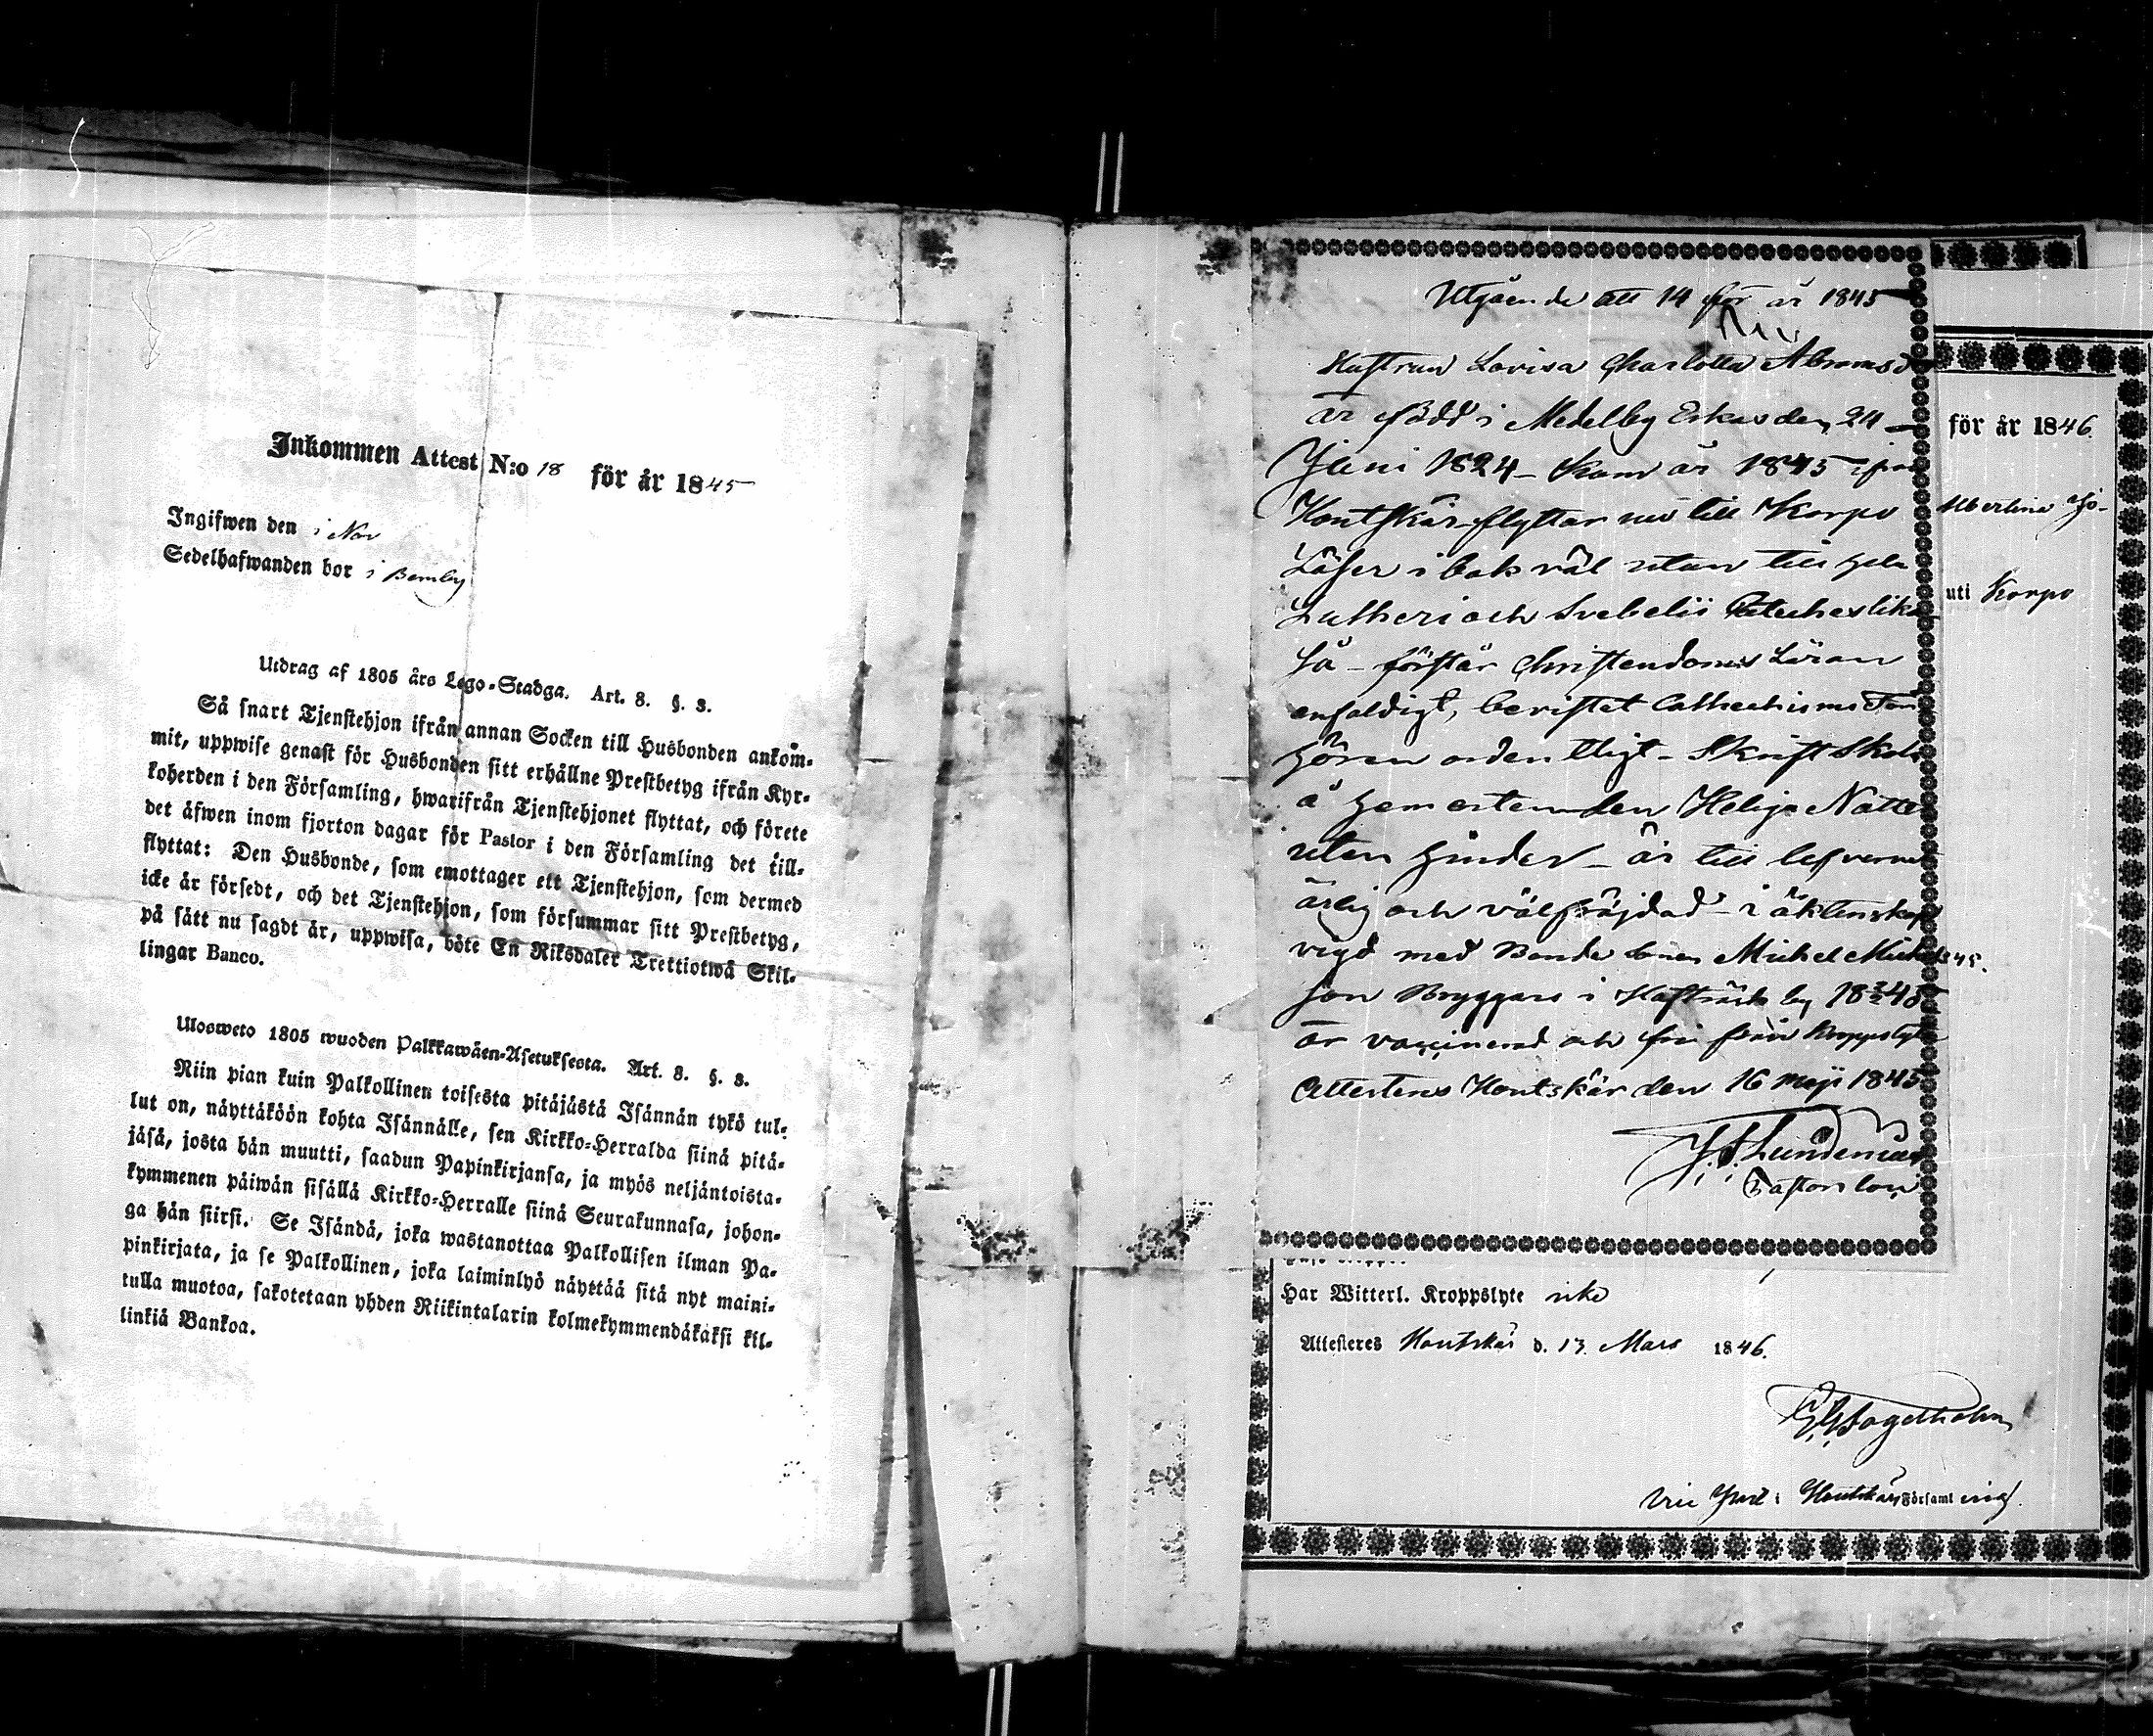 Inkommen Attest N:o 18 för år 1845
Ingifwen den i Nov
Sedelhafwanden bor i Benby
Utdrag af 1805 års Lego-Stadga. Art. 8. §. 3.
Så snart Tjenstehjon ifrån annan Socken till Husbonden ankom-
mit, uppwise genast för Husbonden sitt erhållne Prestbetyg ifrån Kyr-
koherden i den Församling, hwarifrån Tjenstehjonet flyttat, och förete
det äfwen inom fjorton dagar för Pastor i den Församling det till-
flyttat: Den Husbonde, som emottager ett Tjenstehjon, som dermed
icke är försedt, och det Tjenstehjon, som försummar sitt Prestbetyg,
på sätt nu sagdt är, uppwisa, böte En Riksdaler Trettiotwå Skil-
lingar Banco.
Ulosweto 1805 wuoden Palkkawäen-Asetuksesta. Art. 8. §. 3.
Niin pian kuin Palkollinen toisesta pitäjästä Isännän tykö tul-
lut on, näyttäköön kohta Isännälle, sen Kirkko-Herralda siinä pitä-
jäsä, josta hän muutti, saadun Papinkirjansa, ja myös neljäntoista-
kymmenen päiwän sisällä Kirkko-Herralle siinä Seurakunnasa, johon-
ga hän siirsi. Se Isändä, joka wastanottaa Palkollisen ilman Pa-
pinkirjata, ja se Palkollinen, joka laiminlyö näyttää sitä nyt maini-
tulla muotoa, sakotetaan yhden Riikintalarin kolmekymmendäkaksi kil-
linkiä Bankoa.
Utgående att 14 för år 1845
Hustrun Lovisa Charlotta Abramsd
är född i Medelby den 24
Juni 1824 - Kom år 1845 ifrån
Houtskär flyttar nu till Korpo
Läser i bok väl utan till hela
Lutheri och Svebelii Cateches lika
så - förstår Christendoms Läran
enfaldigt, bevistat Cathechismi För
hören ordentligt - Skrift Skola
å hem orten den Helige Natte
utan hinder - är till lefvernet
ärlig och välfräjdad - i äktenskap
vigd med Bonde Sonen Michel Michels
son Bryggars i by 18 45
är vaccinerad och fri från kroppslyte
Attesteras Houtskär den 16 Maji 1845
Lundenius
Pastor loci
för år 1846.
Albertina
uti Korpo
Har Witterl. Kroppslyte icke
Attesteres Houtskär d. 13. Mars 1846.
Fagerholm
Vice Past i Houtskärs Församling.